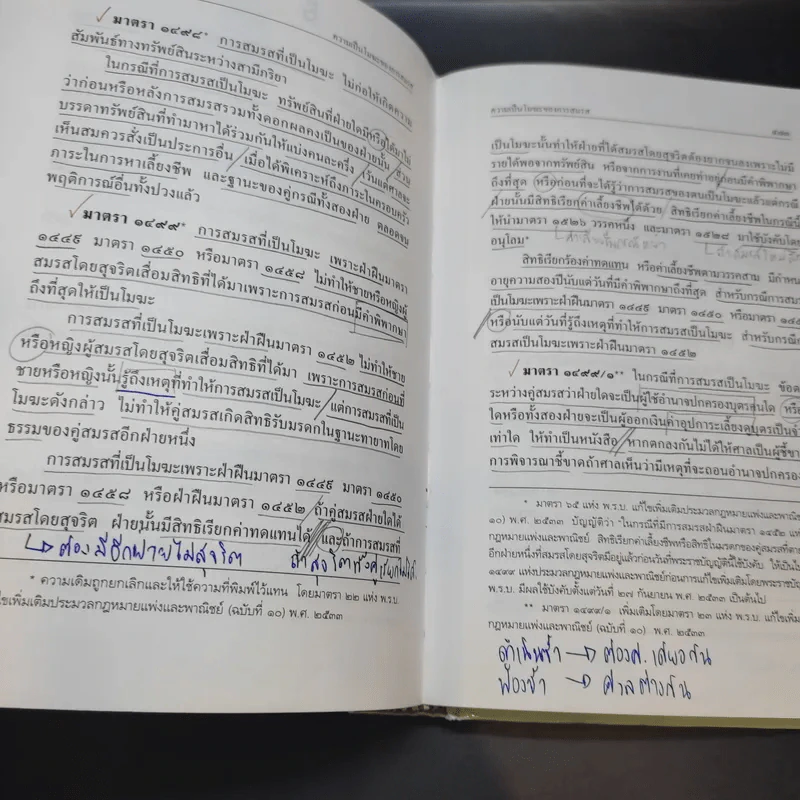 ความเป็นโมฆะของการสมรส
✓ มาตรา ๑๔๙๘* การสมรสที่เป็นโมฆะ ไม่ก่อให้เกิดความ
สัมพันธ์ทางทรัพย์สินระหว่างสามีภริยา
ในกรณีที่การสมรสเป็นโมฆะ ทรัพย์สินที่ฝ่ายใดมีหรือได้มาไม่
ว่าก่อนหรือหลังการสมรสรวมทั้งดอกผลคงเป็นของฝ่ายนั้น ส่วน
บรรดาทรัพย์สินที่ทำมาหาได้ร่วมกันให้แบ่งคนละครึ่ง เว้นแต่ศาลจะ
เห็นสมควรสั่งเป็นประการอื่น เมื่อได้พิเคราะห์ถึงภาระในครอบครัว
ภาระในการหาเลี้ยงชีพ และฐานะของคู่กรณีทั้งสองฝ่าย ตลอดจน
พฤติการณ์อื่นทั้งปวงแล้ว
✓ มาตรา ๑๔๙๙* การสมรสที่เป็นโมฆะ เพราะฝ่าฝืนมาตรา
๑๔๔๙ มาตรา ๑๔๕๐ หรือมาตรา ๑๔๕๘ ไม่ทำให้ชายหรือหญิงผู้
สมรสโดยสุจริตเสื่อมสิทธิที่ได้มาเพราะการสมรสก่อนมีคำพิพากษา
ถึงที่สุดให้เป็นโมฆะ
การสมรสที่เป็นโมฆะเพราะฝ่าฝืนมาตรา ๑๔๕๒ ไม่ทำให้ชาย
หรือหญิงผู้สมรสโดยสุจริตเสื่อมสิทธิที่ได้มา เพราะการสมรสก่อนที่
ชายหรือหญิงนั้นรู้ถึงเหตุที่ทำให้การสมรสเป็นโมฆะ แต่การสมรสที่เป็น
โมฆะดังกล่าว ไม่ทำให้คู่สมรสเกิดสิทธิรับมรดกในฐานะทายาทโดย
ธรรมของคู่สมรสอีกฝ่ายหนึ่ง
การสมรสที่เป็นโมฆะเพราะฝ่าฝืนมาตรา ๑๔๔๙ มาตรา ๑๔๕๐
หรือมาตรา ๑๔๕๘ หรือฝ่าฝืนมาตรา ๑๔๕๒ ถ้าคู่สมรสฝ่ายใดได้
สมรสโดยสุจริต ฝ่ายนั้นมีสิทธิเรียกค่าทดแทนได้ และถ้าการสมรสที่
ต้องมีอีกฝ่ายไม่สุจริต ถ้าสุจริตทั้งคู่
* ความเดิมถูกยกเลิกและให้ใช้ความที่พิมพ์ไว้แทน โดยมาตรา ๒๒ แห่ง พ.ร.บ.
ไขเพิ่มเติมประมวลกฎหมายแพ่งและพาณิชย์ (ฉบับที่ ๑๐) พ.ศ. ๒๕๓๓
ความเป็นโมฆะของการสมรส
เป็นโมฆะนั้นทำให้ฝ่ายที่ได้สมรสโดยสุจริตต้องยากจนลงเพราะไม่มี
รายได้พอจากทรัพย์สิน หรือจากการงานที่เคยทำอยู่ก่อนมีคำพิพากษา
ถึงที่สุด หรือก่อนที่จะได้รู้ว่าการสมรสของตนเป็นโมฆะแล้วแต่กรณี
ฝ่ายนั้นมีสิทธิเรียกค่าเลี้ยงชีพได้ด้วย สิทธิเรียกค่าเลี้ยงชีพในกรณีนี้
ให้นำมาตรา ๑๕๒๖ วรรคหนึ่ง และมาตรา ๑๕๒๘ มาใช้บังคับโดย
อนุโลม*
สิทธิเรียกร้องค่าทดแทน หรือค่าเลี้ยงชีพตามวรรคสาม มีกำหนด
อายุความสองปีนับแต่วันที่มีคำพิพากษาถึงที่สุด สำหรับกรณีการสมรส
เป็นโมฆะเพราะฝ่าฝืนมาตรา ๑๔๔๙ มาตรา ๑๔๕๐ หรือมาตรา ๑๔๕
หรือนับแต่วันที่รู้ถึงเหตุที่ทำให้การสมรสเป็นโมฆะ สำหรับกรณี
สมรสเป็นโมฆะเพราะฝ่าฝืนมาตรา ๑๔๕๒
✓ มาตรา ๑๔๙๙/๑** ในกรณีที่การสมรสเป็นโมฆะ ข้อต
ระหว่างคู่สมรสว่าฝ่ายใดจะเป็นผู้ใช้อำนาจปกครองบุตรคนใด หรือ
ใดหรือทั้งสองฝ่ายจะเป็นผู้ออกเงินค่าอุปการะเลี้ยงดูบุตรเป็นจำ
เท่าใด ให้ทำเป็นหนังสือ หากตกลงกันไม่ได้ให้ศาลเป็นผู้ชี้ขา
การพิจารณาชี้ขาดถ้าศาลเห็นว่ามีเหตุที่จะถอนอำนาจปกครอง
* มาตรา ๖๕ แห่ง พ.ร.บ. แก้ไขเพิ่มเติมประมวลกฎหมายแพ่งและพาณิชย์
๑๐) พ.ศ. ๒๕๓๓ บัญญัติว่า "ในกรณีที่มีการสมรสฝ่าฝืนมาตรา ๑๔๕๒ แห่ง
กฎหมายแพ่งและพาณิชย์ สิทธิเรียกค่าเลี้ยงชีพหรือสิทธิในมรดกของคู่สมรสที่ตาย
อีกฝ่ายหนึ่งที่สมรสโดยสุจริตมีอยู่แล้วก่อนวันที่พระราชบัญญัตินี้ใช้บังคับ ให้เป็นไ
๑๔๙๙ แห่งประมวลกฎหมายแพ่งและพาณิชย์ก่อนการแก้ไขเพิ่มเติมโดยพระราชบั
พ.ร.บ. มีผลใช้บังคับตั้งแต่วันที่ ๒๗ กันยายน พ.ศ. ๒๕๓๓ เป็นต้นไป
** มาตรา ๑๔๙๙/๑ เพิ่มเติมโดยมาตรา ๒๓ แห่ง พ.ร.บ. แก้ไขเพิ่
กฎหมายแพ่งและพาณิชย์ (ฉบับที่ ๑๐) พ.ศ. ๒๕๓๓
ดำเนินซ้ำ → ต้องศ. เดียวกัน
ฟ้องซ้ำ → ศาลต่างกัน